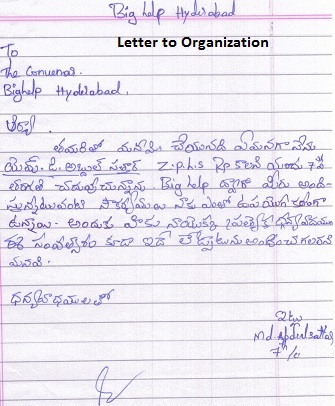 Big help Hyderabad
Letter to Organization
To
The Convenar.
Bighelp Hyderabad.
ఆర్యా
తమరితో మనవి చేయునది ఏమనగా నేను
యమ్. డి. అబ్దుల్ సత్తార్ Z.p.h.s Rp కాలని యందు 7వ
తరగతి చదువుచున్నాను Big help ద్వారా మీరు అంది-
స్తున్నటువంటి నాకు ఎంతో ఉపయోగకరంగా
ఉన్నాయి. అందుకు మీకు నాయొక్క
ఈ సంవత్సరం కూడా ఇదే
మనవి.
ధన్యవాదములతో
ఇట్లు
Md. Abdul sattar
7th/c